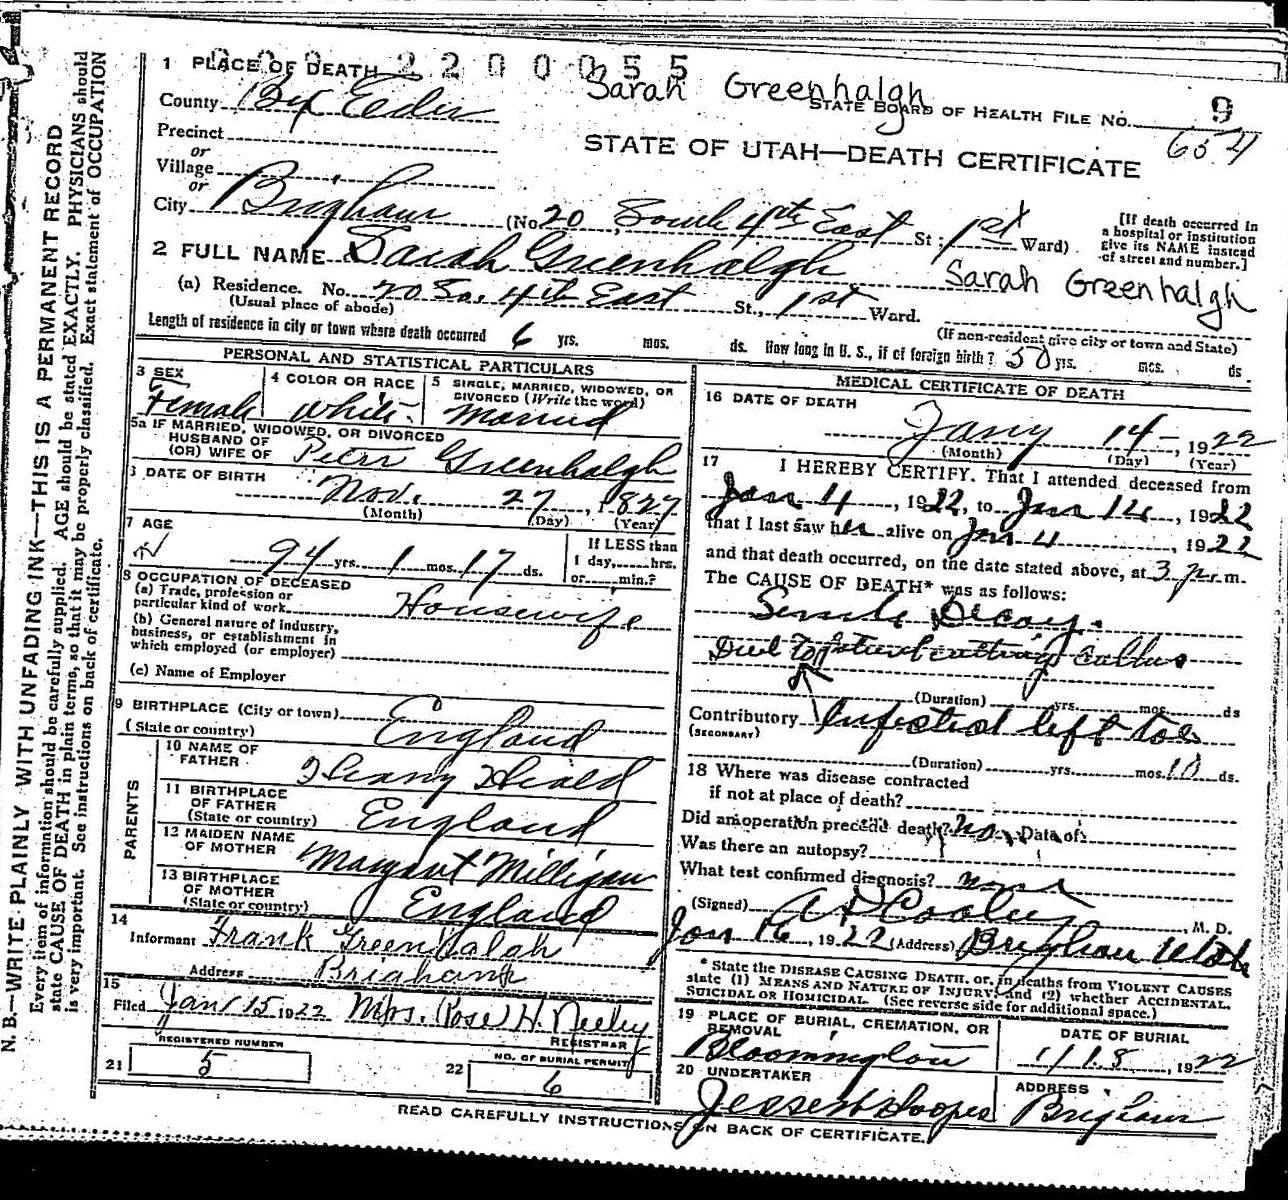 2200055
1 PLACE OF DEATH
Sarah Greenhalgh
County Box Elder
STATE BOARD OF HEALTH FILE NO. 9
654
Precinct
or
STATE OF UTAH—DEATH CERTIFICATE
Village
or
City Brigham (No. 20 South 4th East St; 1st Ward)
[If death occurred in
a hospital or institution
give its NAME instead
of street and number.]
2 FULL NAME Sarah Greenhalgh
Sarah Greenhalgh
(a) Residence. No. 20 So. 4th East St., 1st Ward.
(Usual place of abode)
(If non-resident give city or town and State)
Length of residence in city or town where death occurred 6 yrs. mos. ds. How long in U. S., if of foreign birth? 50 yrs. mos. ds
PERSONAL AND STATISTICAL PARTICULARS
3 SEX
Female
4 COLOR OR RACE
White
5 SINGLE, MARRIED, WIDOWED, OR
DIVORCED (Write the word)
Married
5a IF MARRIED, WIDOWED, OR DIVORCED
HUSBAND OF
(OR) WIFE OF Peter Greenhalgh
6 DATE OF BIRTH
Nov. 27, 1827
(Month) (Day) (Year)
7 AGE
94 yrs. 1 mos. 17 ds.
If LESS than
1 day, hrs.
or min.?
8 OCCUPATION OF DECEASED
(a) Trade, profession or
particular kind of work Housewife
(b) General nature of industry,
business, or establishment in
which employed (or employer)
(c) Name of Employer
9 BIRTHPLACE (City or town)
(State or country) England
PARENTS
10 NAME OF
FATHER Henry
11 BIRTHPLACE
OF FATHER
(State or country) England
12 MAIDEN NAME
OF MOTHER Margaret Milligan
13 BIRTHPLACE
OF MOTHER
(State or country) England
14
Informant Frank Greenhalgh
Address Brigham
15
Filed Jan 15 1922 Mrs. Rose H. Neeley
REGISTRAR
REGISTERED NUMBER
21 5
NO. OF BURIAL PERMIT
22 6
MEDICAL CERTIFICATE OF DEATH
16 DATE OF DEATH
Jany 14 - , 1922
(Month) (Day) (Year)
17 I HEREBY CERTIFY. That I attended deceased from
Jan 4, 1922, to Jan 14, 1922
that I last saw her alive on Jan 4, 1922
and that death occurred, on the date stated above, at 3 p. m.
The CAUSE OF DEATH* was as follows:
Senile Decay.
Due to cutting callus
(Duration) yrs. mos. ds
Contributory Infected left toe
(SECONDARY)
(Duration) yrs. mos. 10 ds.
18 Where was disease contracted
if not at place of death?
Did an operation precede death? no Date of:
Was there an autopsy?
What test confirmed diagnosis? none
(Signed) A D Cooley, M. D.
Jan 16, 1922 (Address) Brigham Utah
* State the DISEASE CAUSING DEATH, or, in deaths from VIOLENT CAUSES
state (1) MEANS AND NATURE OF INJURY; and (2) whether ACCIDENTAL,
SUICIDAL OR HOMICIDAL. (See reverse side for additional space.)
19 PLACE OF BURIAL, CREMATION, OR
REMOVAL
Bloomington
DATE OF BURIAL
1/18, 1922
20 UNDERTAKER
Jesse W Hoopes
ADDRESS
Brigham
READ CAREFULLY INSTRUCTIONS ON BACK OF CERTIFICATE.
N. B.—WRITE PLAINLY WITH UNFADING INK—THIS IS A PERMANENT RECORD
Every item of information should be carefully supplied. AGE should be stated EXACTLY. PHYSICIANS should
state CAUSE OF DEATH in plain terms, so that it may be properly classified. Exact statement of OCCUPATION
is very important. See instructions on back of certificate.